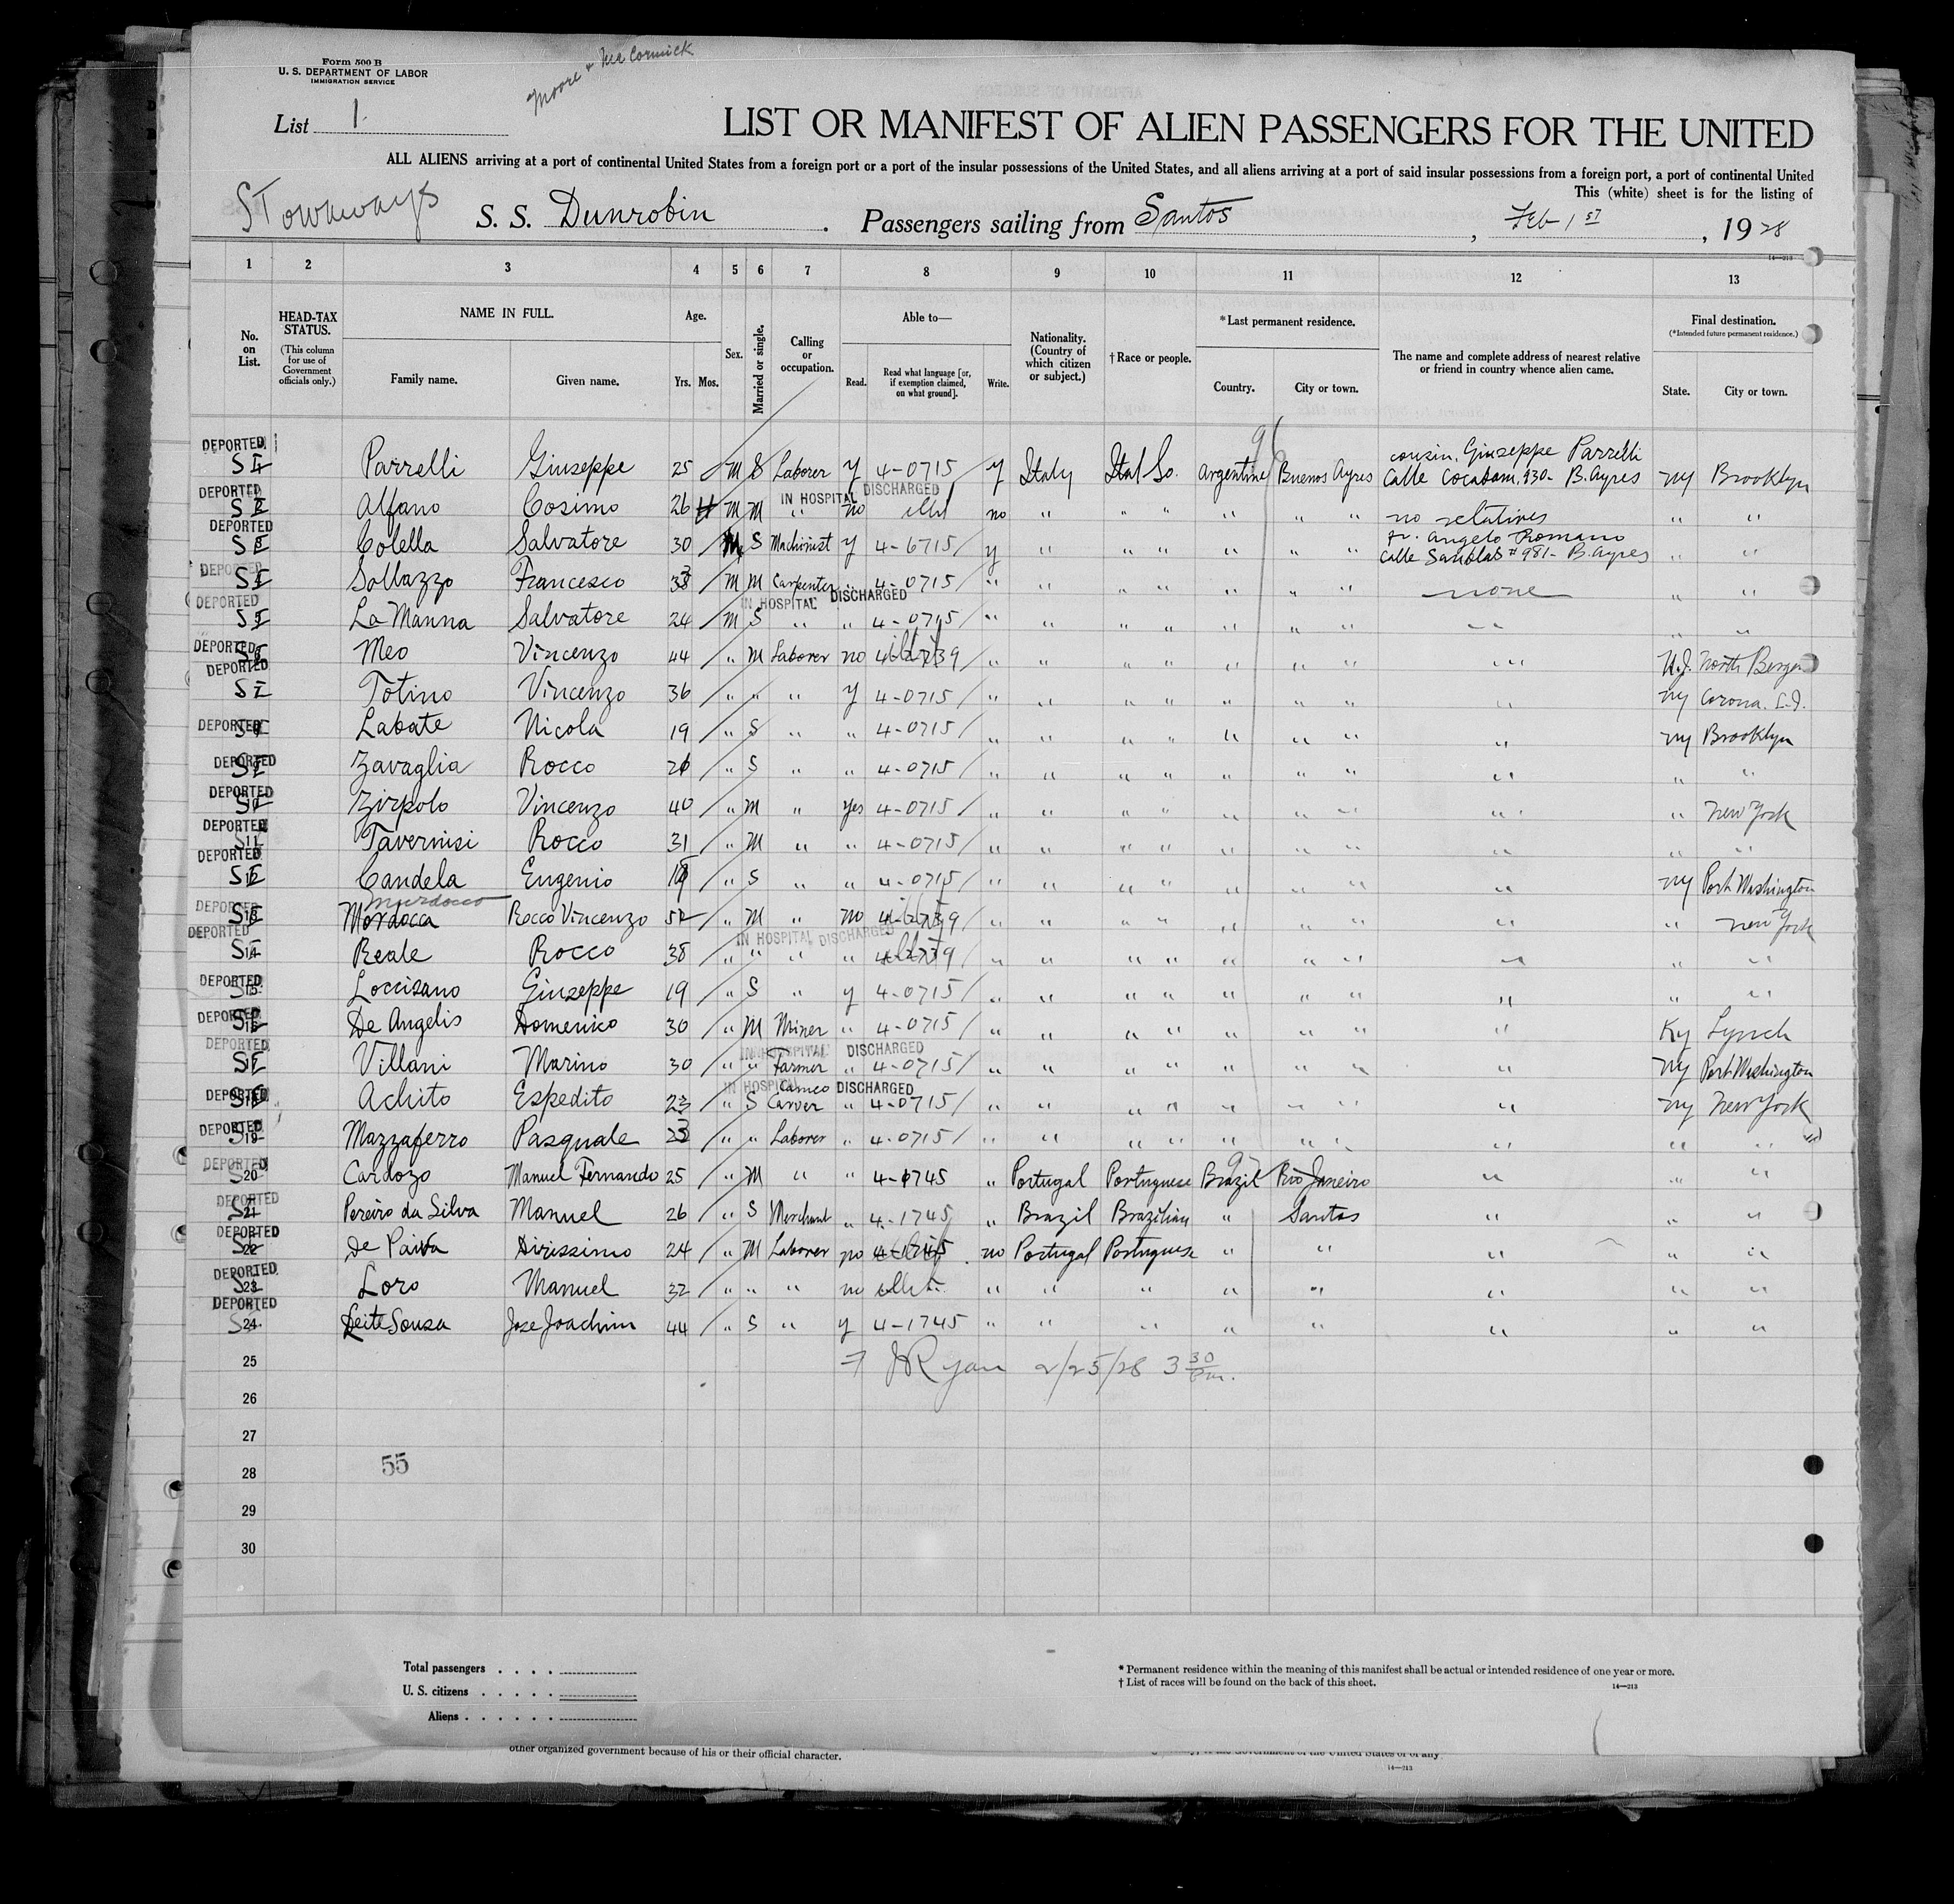 Form 500 B
U. S. DEPARTMENT OF LABOR
IMMIGRATION SERVICE
Moore & McCormick
List 1.
LIST OR MANIFEST OF ALIEN PASSENGERS FOR THE UNITED
ALL ALIENS arriving at a port of continental United States from a foreign port or a port of the insular possessions of the United States, and all aliens arriving at a port of said insular possessions from a foreign port, a port of continental United
This (white) sheet is for the listing of
Stowaways S. S. Dunrobin. Passengers sailing from Santos, Feb 1st, 1928
14—213
1 2 3 4 5 6 7 8 9 10 11 12 13
No. on List.
HEAD-TAX STATUS.
(This column for use of Government officials only.)
NAME IN FULL.
Family name. Given name.
Age.
Yrs. Mos.
Sex.
Married or single.
Calling or occupation.
Able to—
Read. Read what language [or, if exemption claimed, on what ground]. Write.
Nationality. (Country of which citizen or subject.)
† Race or people.
* Last permanent residence.
Country. City or town.
The name and complete address of nearest relative or friend in country whence alien came.
Final destination.
(*Intended future permanent residence.)
State. City or town.
96
DEPORTED S 1 Parrelli Giuseppe 25 M S Laborer y 4-0715 y Italy Ital So. Argentine Buenos Ayres cousin. Giuseppe Parrelli Calle 930- B. Ayres NY Brooklyn
IN HOSPITAL DISCHARGED
DEPORTED S 2 Alfano Cosimo 26 M M " no no " " " " " " no relatives " "
DEPORTED S 3 Colella Salvatore 30 M S Machinist y 4-6715 y " " " " " " fr. Angelo Romano Calle Sanblas #981- B. Ayres " "
DEPORTED S 4 Sollazzo Francesco M M Carpenter " 4-0715 " " " " " " " none " "
IN HOSPITAL DISCHARGED
DEPORTED S 5 La Manna Salvatore 24 M S " " 4-0715 " " " " " " " " " " "
DEPORTED S 6 Meo Vincenzo 44 " M Laborer no " " " " " " " " " " N.J. North Bergen
DEPORTED S 7 Totino Vincenzo 36 " " " y 4-0715 " " " " " " " " NY Corona. L.I.
DEPORTED S 8 Labate Nicola 19 " S " " 4-0715 " " " " " " " " NY Brooklyn
DEPORTED S 9 Zavaglia Rocco " S " " 4-0715 " " " " " " " " " "
DEPORTED S 10 Zirpolo Vincenzo 40 " M " yes 4-0715 " " " " " " " " " New York
DEPORTED S 11 Tavernisi Rocco 31 " M " " 4-0715 " " " " " " " " " "
DEPORTED S 12 Candela Eugenio " S " " 4-0715 " " " " " " " " NY Port Washington
Murdocco
DEPORTED S 13 Mordocca Rocco Vincenzo 52 " M " no " " " " " " " " " New York
IN HOSPITAL DISCHARGED
DEPORTED S 14 Reale Rocco 38 " " " " " " " " " " " " " "
DEPORTED S 15 Loccisano Giuseppe 19 " S " y 4-0715 " " " " " " " " " "
DEPORTED S 16 De Angelis Domenico 30 " M Miner " 4-0715 " " " " " " " " Ky Lynch
IN HOSPITAL DISCHARGED
DEPORTED S 17 Villani Marino 30 " " Farmer " 4-0715 " " " " " " " " NY Port Washington
IN HOSPITAL DISCHARGED
DEPORTED S 18 Achito Espedito 23 " S Cameo Carver " 4-0715 " " " " " " " " NY New York
DEPORTED S 19 Mazzaferro Pasquale " " Laborer " 4-0715 " " " " " " " " " "
DEPORTED S 20 Cardozo Manuel Fernando 25 " M " " 4-1745 " Portugal Portuguese Brazil Rio Janeiro " " "
DEPORTED S 21 Pereiro da Silva Manuel 26 " S Merchant " 4-1745 " Brazil Brazilian " Santos " " "
DEPORTED S 22 De Paiva Dirissimo 24 " M Laborer no no Portugal Portuguese " " " " "
DEPORTED S 23 Loro Manuel 32 " " " no " " " " " " " "
DEPORTED S 24 Leite Sousa Jose Joachim 44 " S " y 4-1745 " " " " " " " "
25 JRyan 2/25/28 3 30 Pm.
26
27
28 55
29
30
Total passengers . . . .
U. S. citizens . . . . .
Aliens . . . . . .
* Permanent residence within the meaning of this manifest shall be actual or intended residence of one year or more.
† List of races will be found on the back of this sheet.
14—213
other organized government because of his or their official character.
14—213